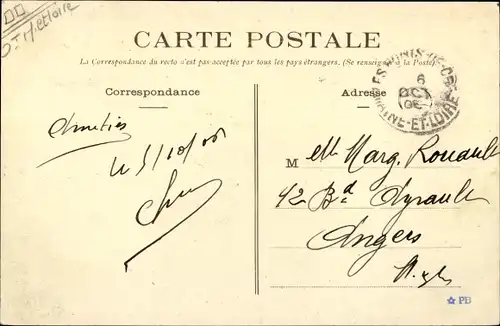 Mt et Loire
CARTE POSTALE
La Correspondance du recto n'est pas acceptée par tous les pays étrangers. (Se renseigner à la Poste)
Correspondance
Adresse
6
OCT
05
MAINE-ET-LOIRE
Amitiés
le 5/10/05
M elle Marg. Rouault
42 Bd Ayrault
Angers
PB